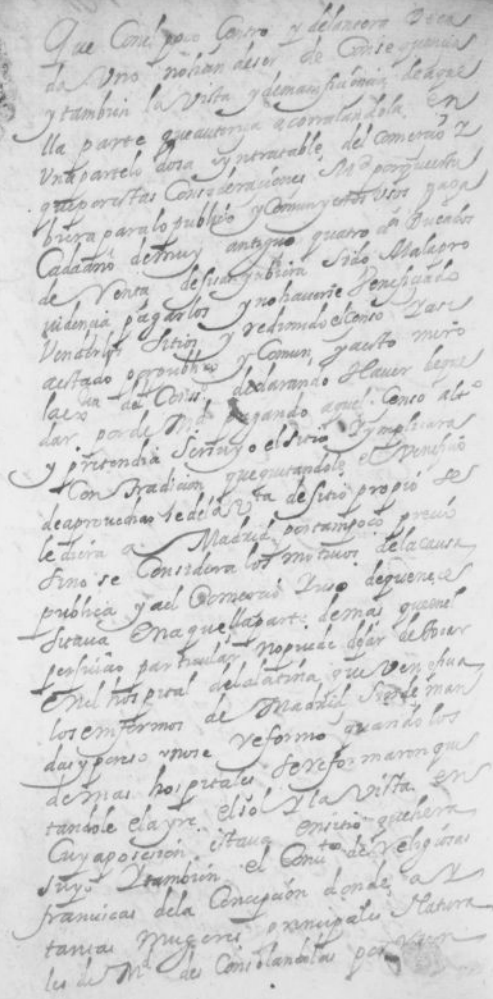 Que Con el poco Centro y delantera De ca
da Uno no han de ser de Conseqquencia
y tambien la Vista y de magnificencia de aque
lla parte que autoriça acorralandola en
Una parte lodosa yntratable del Comercio Y
que por estas Consideraciones M.d por questa
biera para lo publico y Comun y estos usos paga
Cada año de muy antiguo quatro Ducados
de Renta de fuera ubiera sido Malapro
uidencia pagarlos y no hauerse Veneficiado
Venderlos sitios y redimido el Censo Y
a estado por publico y Comun y a esto miro
la de Cons.o declarando Hauer de que
dar por de M.d pagando aquel Censo
y pretendia ser suyo el sitio Ymplicara
Contradicion que quitandole el Veneficio
de aprouecharse de la Vta de sitio propio se
le diera a Madrid por tampoco precio
sino se Considera los motiuos de la causa
publica y del Comercio Uso de que neçe
sitaua en aquella parte demas que en el
perjuicio particular no puede dejar de tocar
en el hospital de la latina que Ven
los emfermos de Madrid
das y por eso no se reformo quando los
demas hospitales se reformaron qui
tandole el ayre el sol Y la Vista en
Cuya posesion estaua en sitio que hera
suyo Y tambien el Conu.to de Religiosas
françiscas de la Concepcion donde a Y
tantas mugeres principales Natura
les de M.d desConsolandolas por